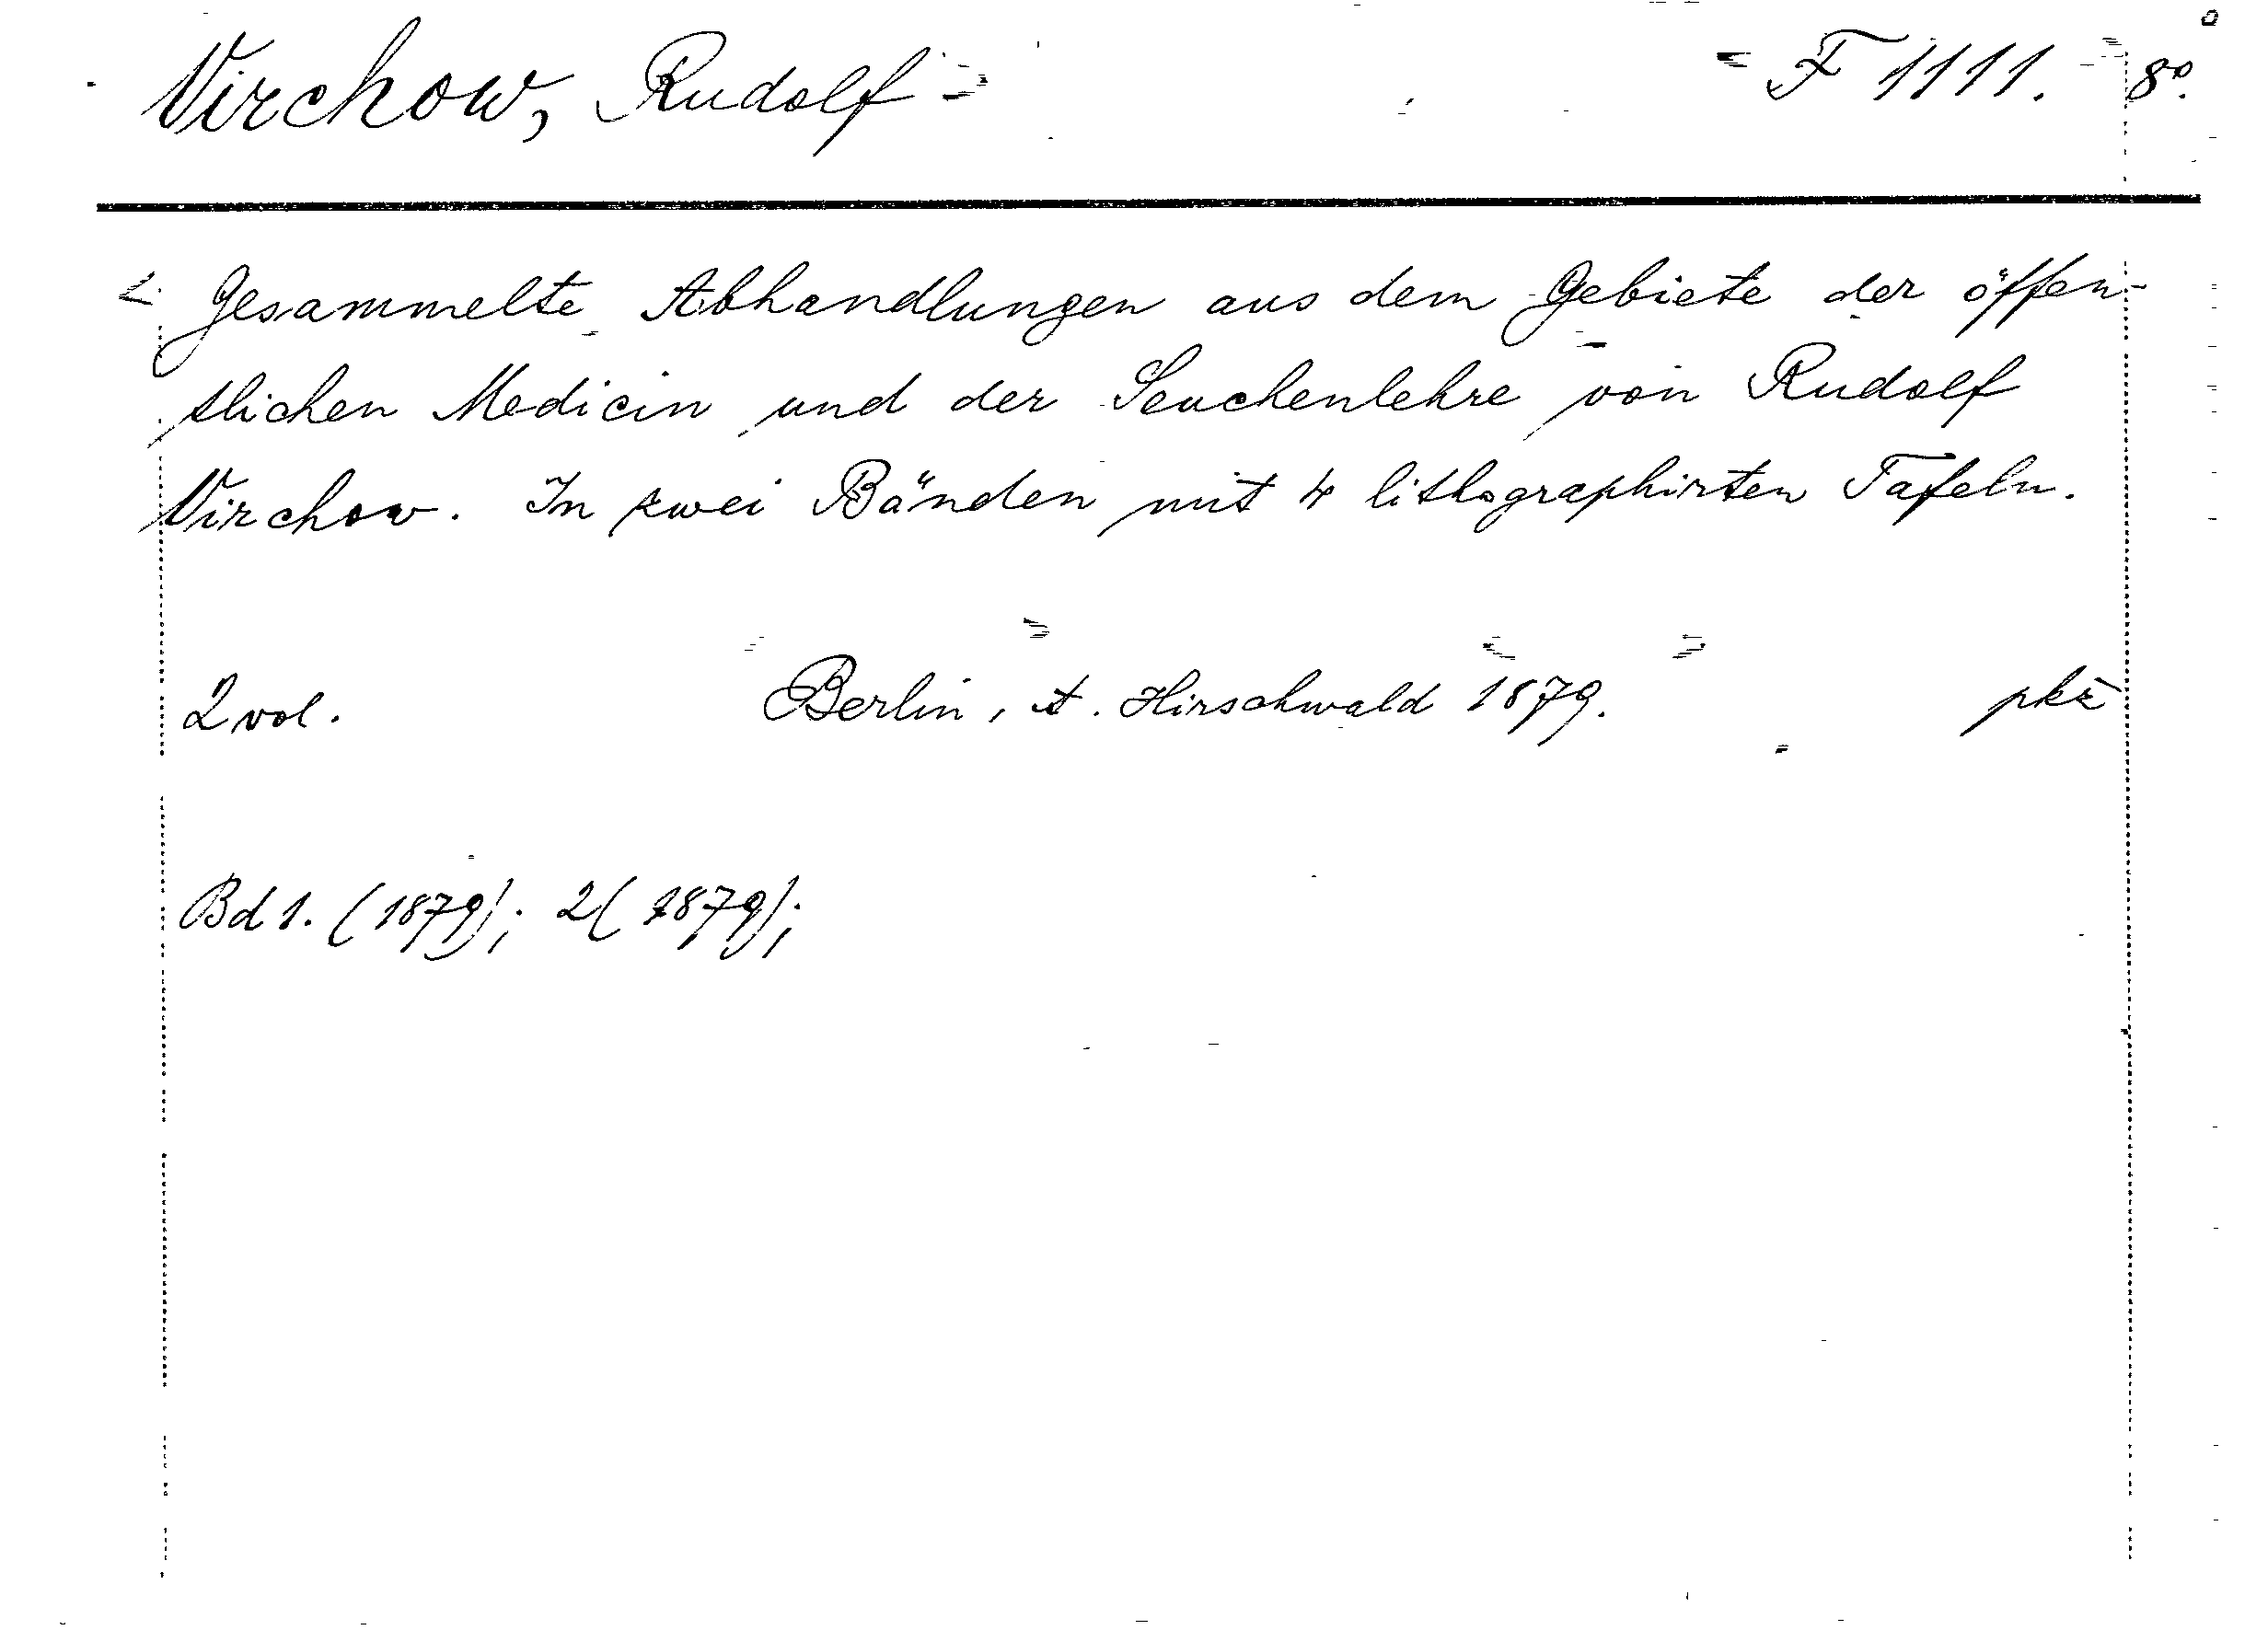 Virchow, Rudolf F 1111. 8°.
Gesammelte Abhandlungen aus dem Gebiete der öffen-
tlichen Medicin und der Seuchenlehre von Rudolf
Virchow. In zwei Bänden mit 4 lithographirten Tafeln.
2 vol. Berlin, A. Hirschwald 1879. pkż
Bd 1. (1879); 2(1879);